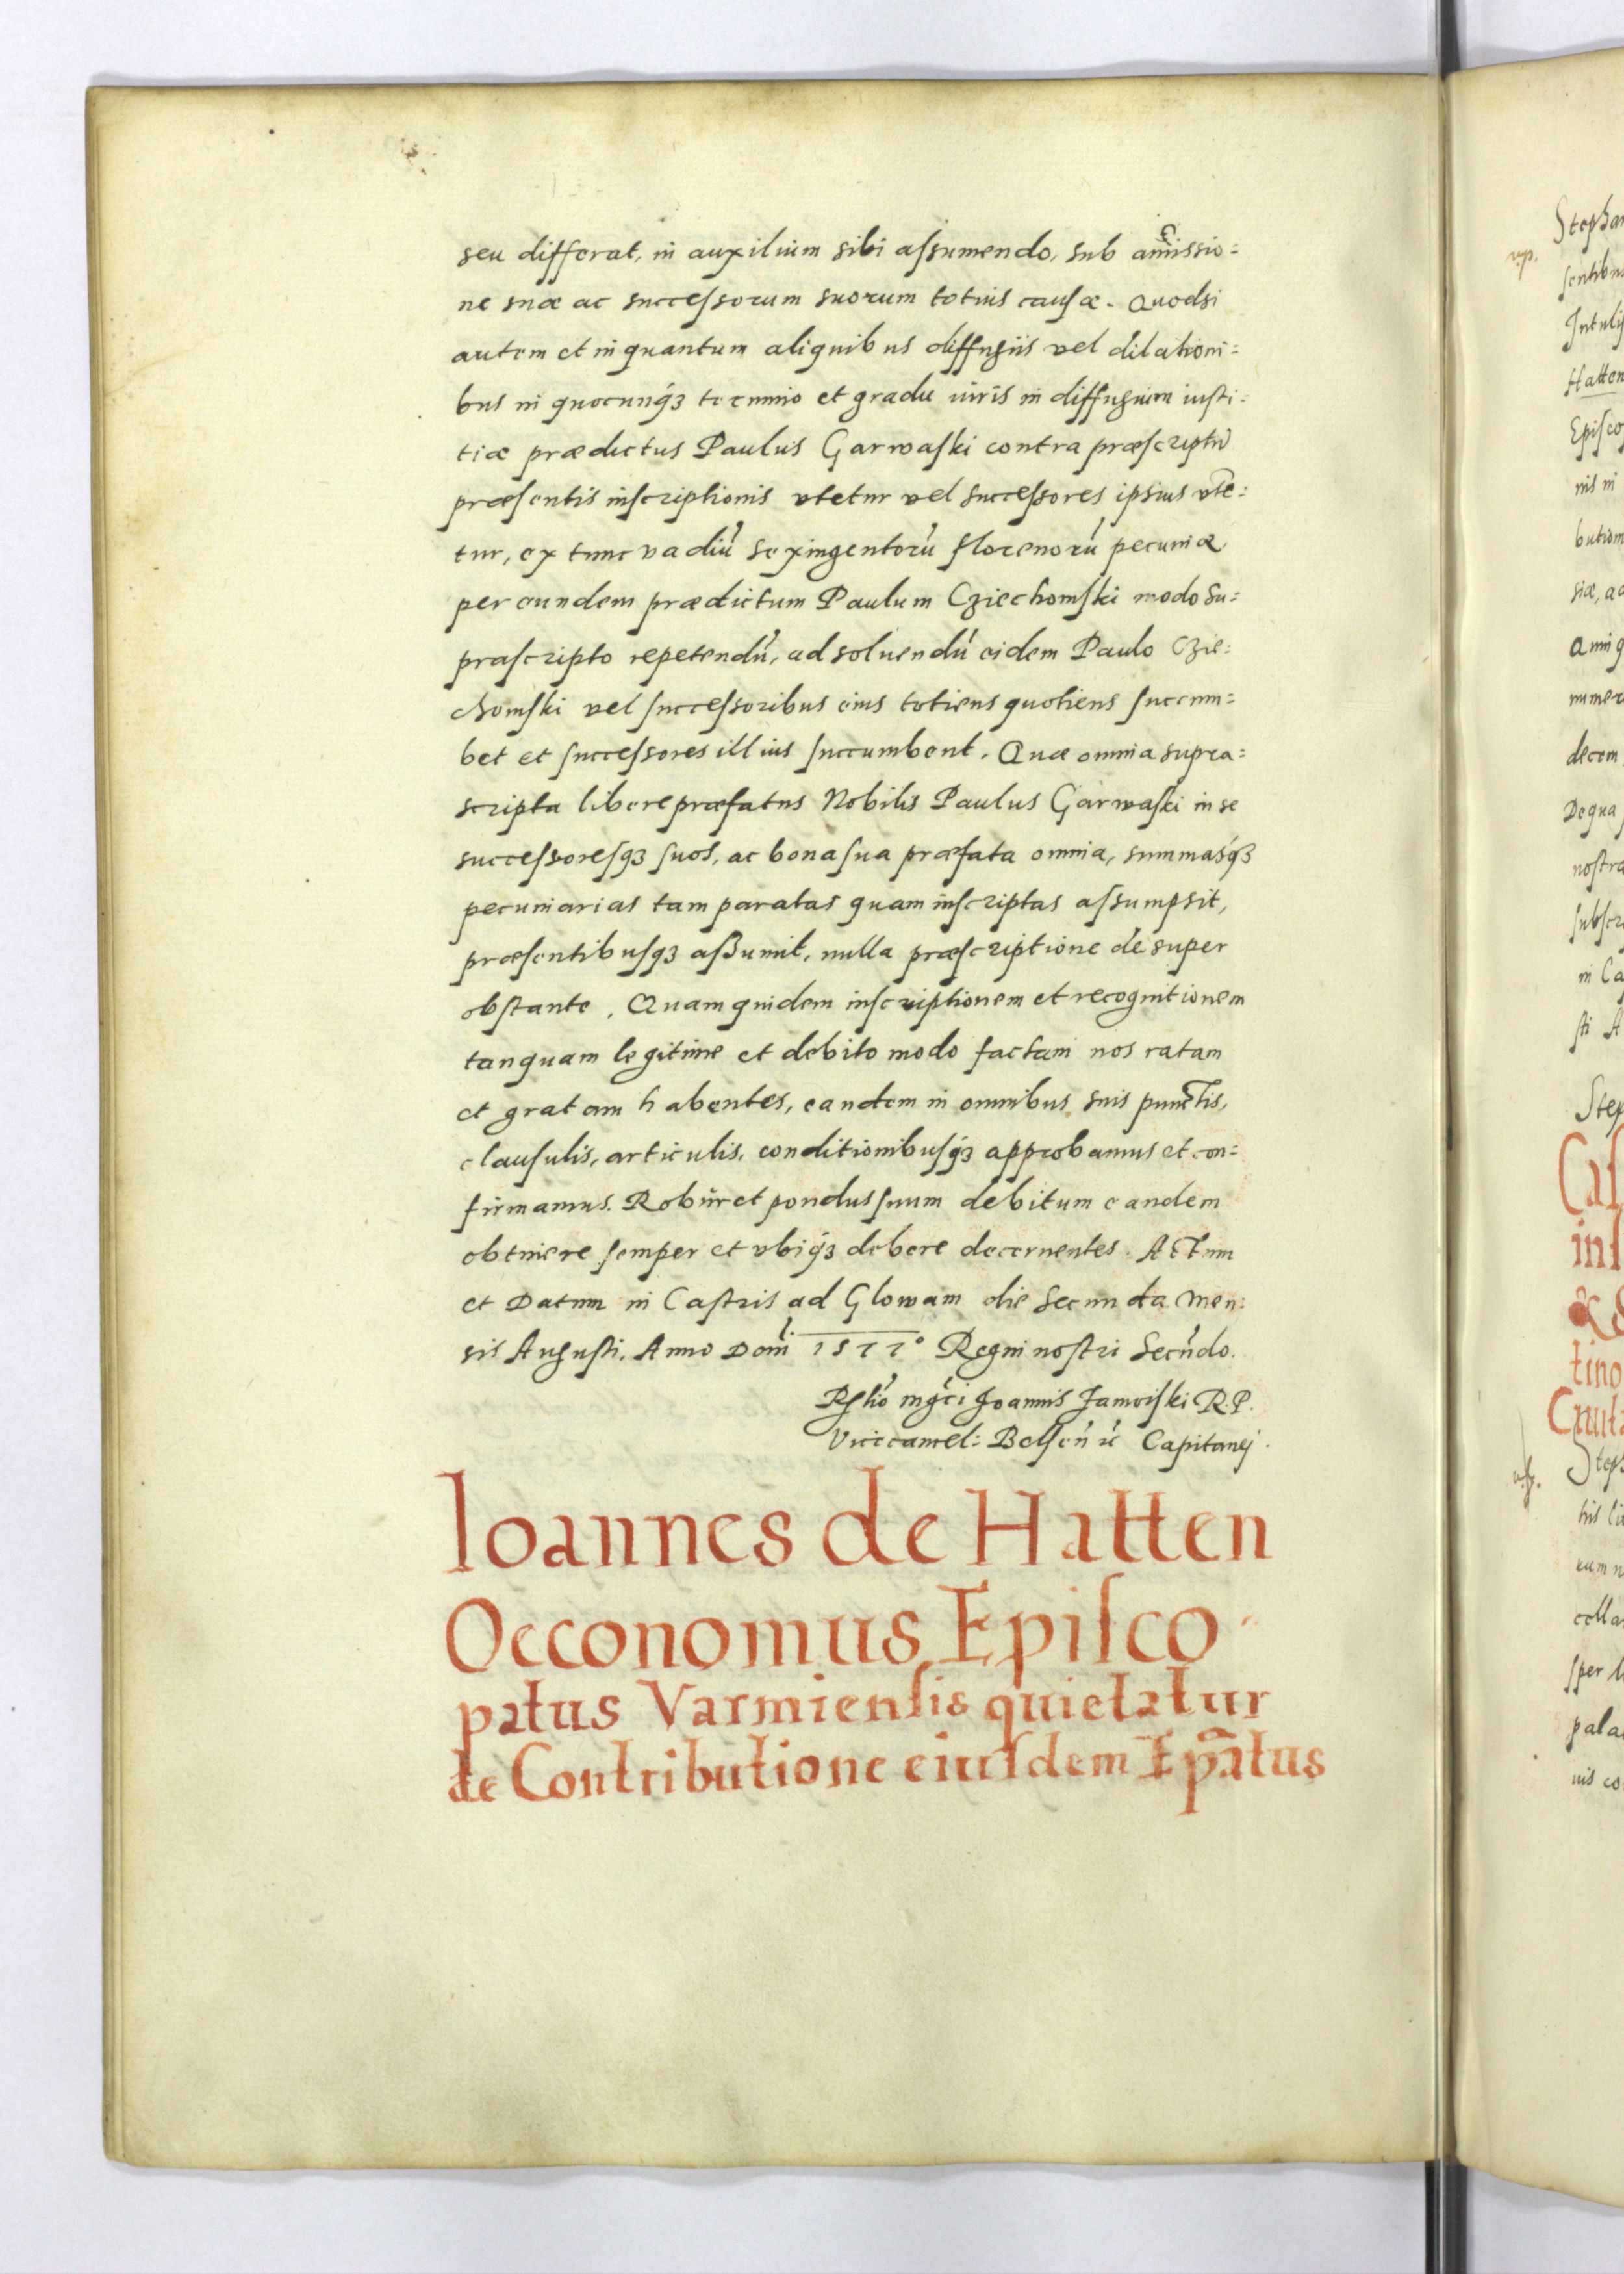 seu differat, in auxilium sibi assumendo, sub amissio=
ne suæ ac successorum suorum totius causæ. Quodsi
autem et in quantum aliquibus diffugiis vel dilationi=
bus in quocunq3 termino et gradu iuris in diffugium iusti=
tiæ prædictus Paulus Garwaski contra præscriptū
præsentis inscriptionis vtetur vel successores ipsius vtē=
tur, ex tunc vadiū sexingentorū florenorū pecuniæ
per eundem prædictum Paulum Cziechomski modo su=
prascripto repetendū, ad soluendū eidem Paulo Czie=
chomski vel successoribus eius totiens quotiens succum=
bet et successores illius succumbent. Quæ omnia supra=
scripta libere præfatus Nobilis Paulus Garwaski in se
successoresq3 suos, ac bona sua præfata omnia, summasq3
pecuniarias tam paratas quam inscriptas assumpsit,
præsentibusq3 assumit, nulla præscriptione desuper
obstante. Quam quidem inscriptionem et recognitionem
tanquam legitime et debito modo factam nos ratam
et gratam habentes, eandem in omnibus suis punctis,
clausulis, articulis, conditionibusq3 approbamus et con=
firmamus. Robur et pondus suum debitum eandem
obtinere semper et vbiq3 debere decernentes. Actum
et Datum in Castris ad Glowam die Secunda Men=
sis Augusti. Anno Domi 1577º Regni nostri Secūdo.
Rstio mgci Joannis Zamoiski R.P.
Vicecancel: Belsen̄ zc Capitanej.
Ioannes de Hatten
Oeconomus Episco
patus Varmiensis quietatur
de Contributione eiusdem Ep̄atus
Stephan
v.p.
sentibus
Hatten
Episco
nis in
bution
siæ, ad
numer
decem
De qua
nostra
subscr
in Ca
sti A
Step
Cas
ins
tino
Step
cum n
colla
sper
pala
uis co